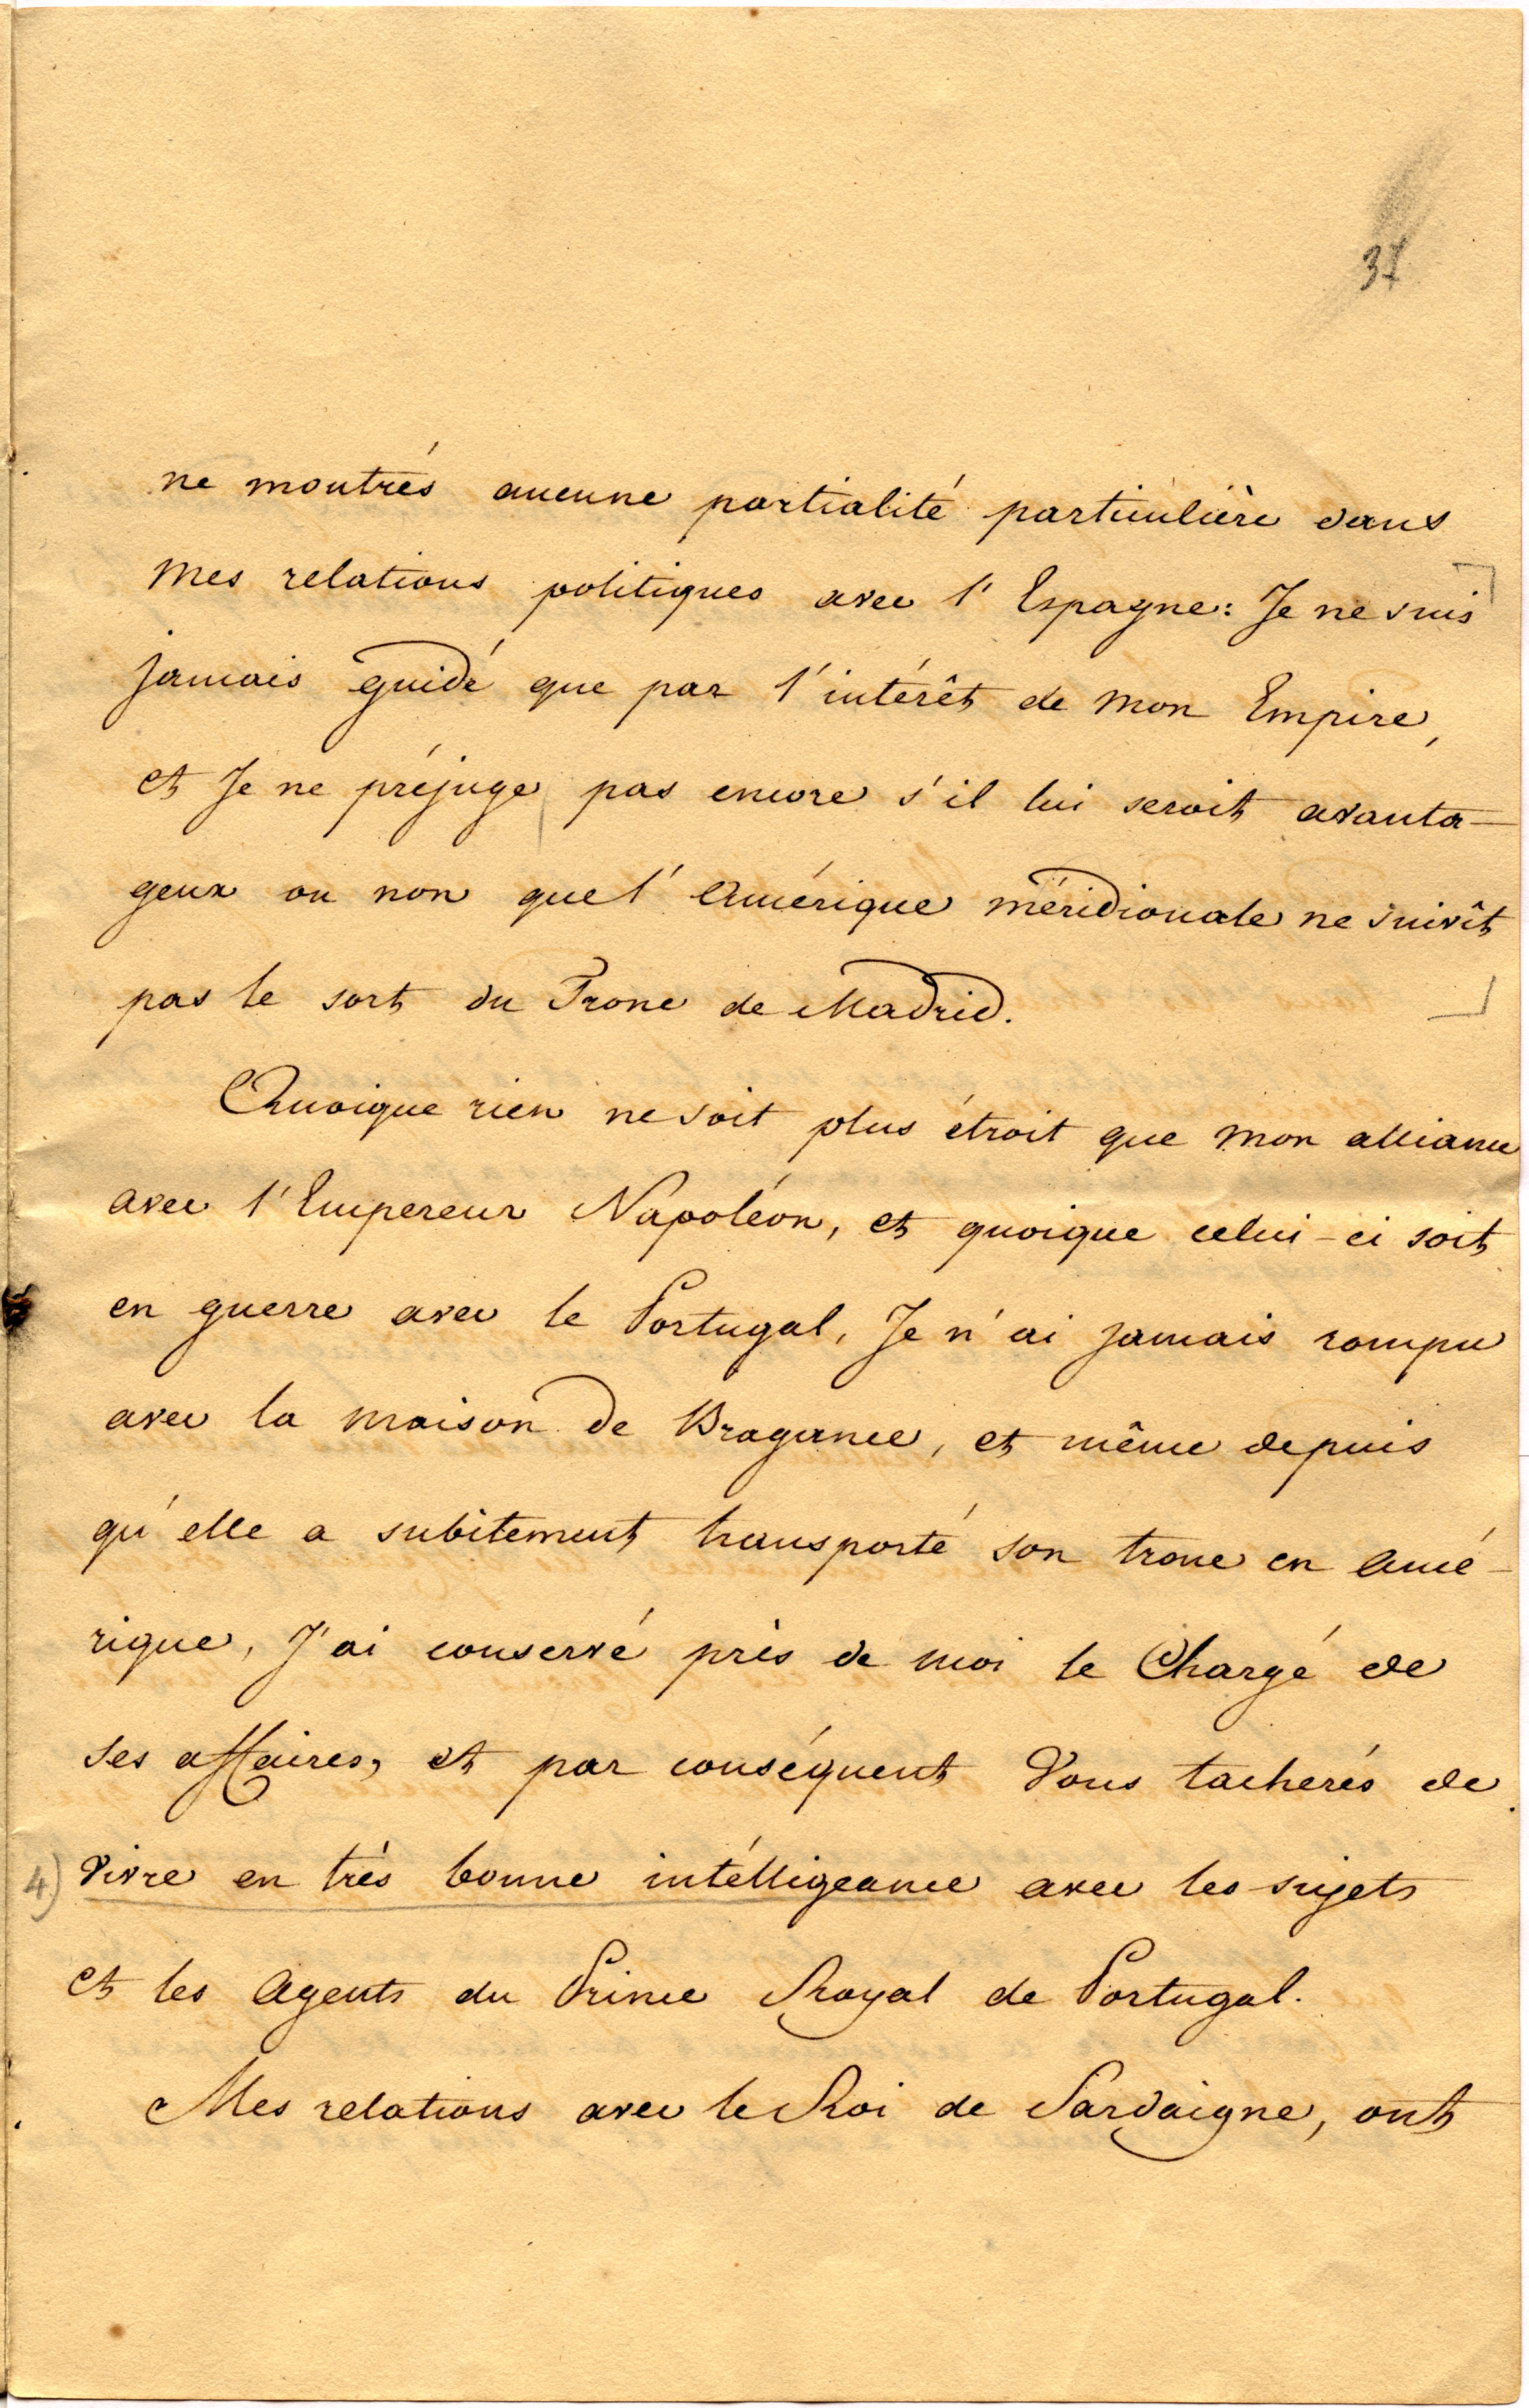 37
ne montrés aucune partialité particulière dans
mes relations politiques avec l'Espagne: Je ne suis
jamais guidé que par l'intérêt de mon Empire,
et Je ne préjuge pas encore s'il lui seroit avanta-
geux ou non que l'Amérique méridionale ne suivît
pas le sort du Trone de Madrid.
Quoique rien ne soit plus étroit que mon alliance
avec l'Empereur Napoléon, et quoique celui-ci soit
en guerre avec le Portugal, Je n'ai jamais rompu
avec la maison de Bragance, et même depuis
qu'elle a subitement transporté son trone en Amé-
rique, J'ai conservé près de moi le Chargé de
ses affaires, et par conséquent Vous tacherés de
4) vivre en très bonne intélligeance avec les sujets
et les Agents du Prince Royal de Portugal.
Mes relations avec le Roi de Sardaigne, ont